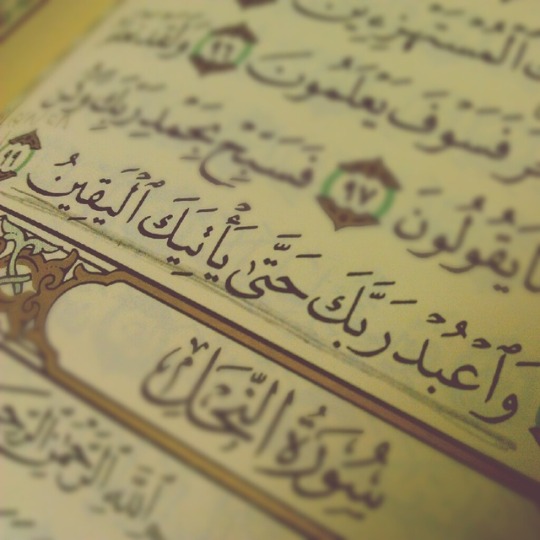 ٱلْمُسْتَهْزِءِينَ
فَسَوْفَ يَعْلَمُونَ ٩٦ وَلَقَدْ نَعْلَمُ
يَقُولُونَ ٩٧ فَسَبِّحْ بِحَمْدِ رَبِّكَ وَكُن
وَٱعْبُدْ رَبَّكَ حَتَّىٰ يَأْتِيَكَ ٱلْيَقِينُ ٩٩
سُورَةُ النَّحْلِ
ٱللَّهِ ٱلرَّحْمَٰنِ ٱلرَّحِيمِ